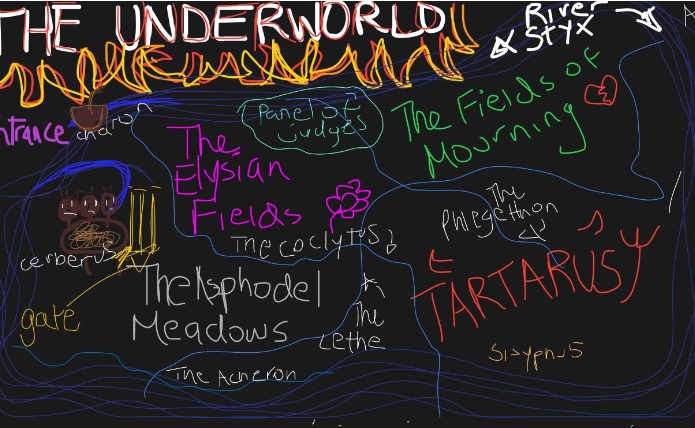 THE UNDERWORLD
River
Styx
Entrance
charon
Panel of
judges
The Fields of
Mourning
The
Elysian
Fields
cerberus
gate
The coclytus
The
Phlegethon
TARTARUS
The Asphodel
Meadows
The
Lethe
Sisyphus
The Acheron